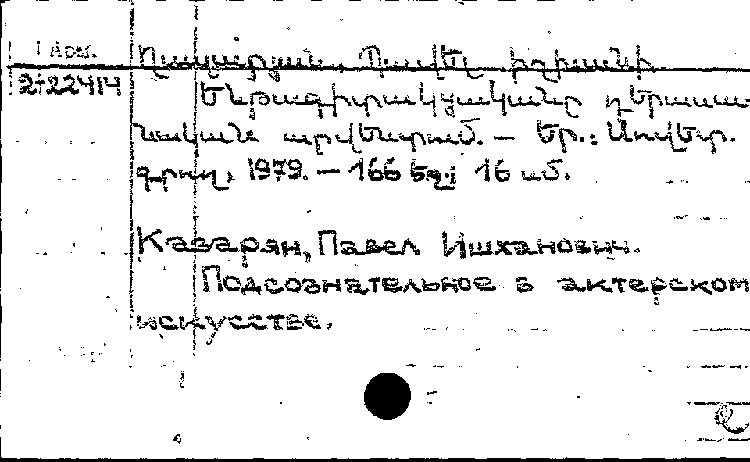 1 Арм.
2+22414
Ղազարյան, Պավել Իշխանի.
Ենթագիտակցականը դերասա
նական արվեստում. — Եր.: Սովետ.
գրող, 1979. — 166 եջ.; 16 սմ.
Казарян, Павел Ишханович.
Подсознательное в актерском
искусстве.